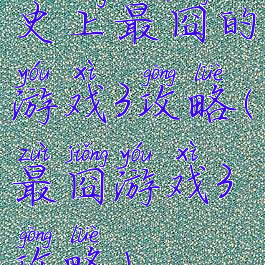 史上最囧的
yóu xì gōng lüè
游戏3攻略(
zuì jiǒng yóu xì
最囧游戏3
gōng lüè
攻略)